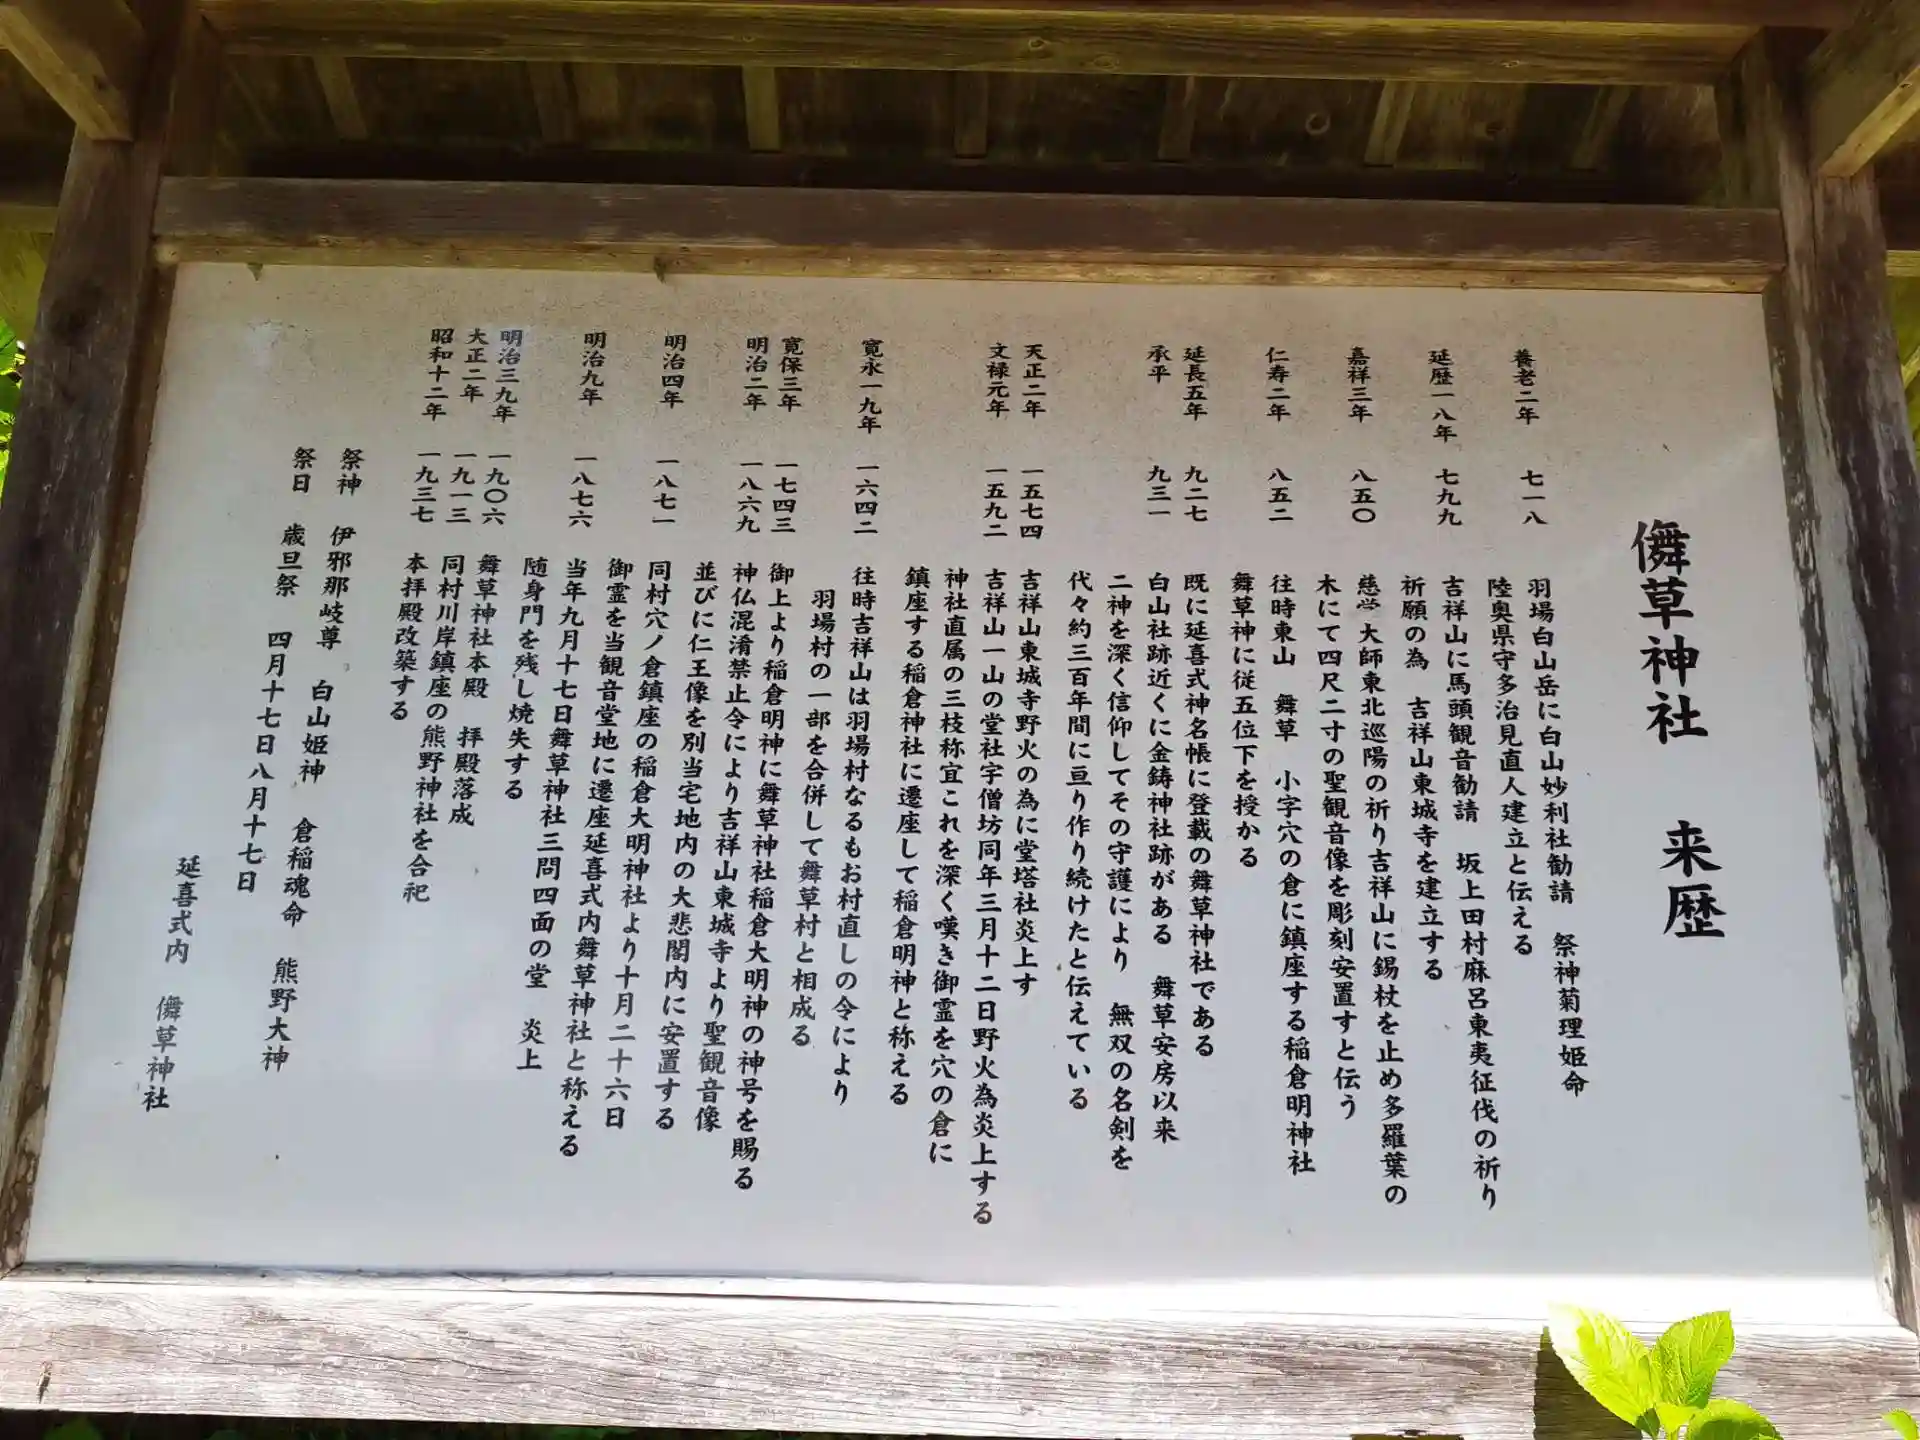 儛草神社　来歴
養老二年　七一八　羽場白山岳に白山妙利社勧請　祭神菊理姫命
陸奥県守多治見直人建立と伝える
延歴一八年　七九九　吉祥山に馬頭観音勧請　坂上田村麻呂東夷征伐の祈り
祈願の為　吉祥山東城寺を建立する
嘉祥三年　八五〇　慈覚大師東北巡陽の祈り吉祥山に錫杖を止め多羅葉の
木にて四尺二寸の聖観音像を彫刻安置すと伝う
仁寿二年　八五二　往時東山　舞草　小字穴の倉に鎮座する稲倉明神社
舞草神に従五位下を授かる
延長五年　九二七　既に延喜式神名帳に登載の舞草神社である
承平　九三一　白山社跡近くに金鋳神社跡がある　舞草安房以来
二神を深く信仰してその守護により　無双の名剣を
代々約三百年間に亘り作り続けたと伝えている
天正二年　一五七四　吉祥山東城寺野火の為に堂塔社炎上す
文禄元年　一五九二　吉祥山一山の堂社宇僧坊同年三月十二日野火為炎上する
神社直属の三枝称宜これを深く嘆き御霊を穴の倉に
鎮座する稲倉神社に遷座して稲倉明神と称える
寛永一九年　一六四二　往時吉祥山は羽場村なるもお村直しの令により
羽場村の一部を合併して舞草村と相成る
寛保三年　一七四三　御上より稲倉明神に舞草神社稲倉大明神の神号を賜る
明治二年　一八六九　神仏混淆禁止令により吉祥山東城寺より聖観音像
並びに仁王像を別当宅地内の大悲閣内に安置する
明治四年　一八七一　同村穴ノ倉鎮座の稲倉大明神社より十月二十六日
御霊を当観音堂地に遷座延喜式内舞草神社と称える
明治九年　一八七六　当年九月十七日舞草神社三問四面の堂　炎上
随身門を残し焼失する
明治三九年　一九〇六　舞草神社本殿　拝殿落成
大正二年　一九一三　同村川岸鎮座の熊野神社を合祀
昭和十二年　一九三七　本拝殿改築する
祭神　伊邪那岐尊　白山姫神　倉稲魂命　熊野大神
祭日　歳旦祭　四月十七日八月十七日
延喜式内　儛草神社